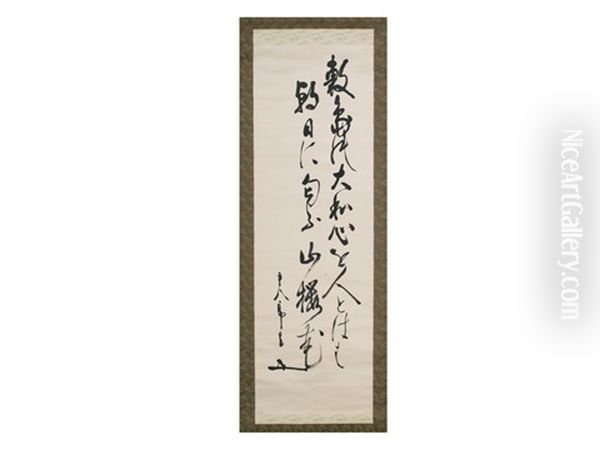 敷島の大和心を人とはゝ
朝日に匂ふ山櫻花
NiceArtGallery.com